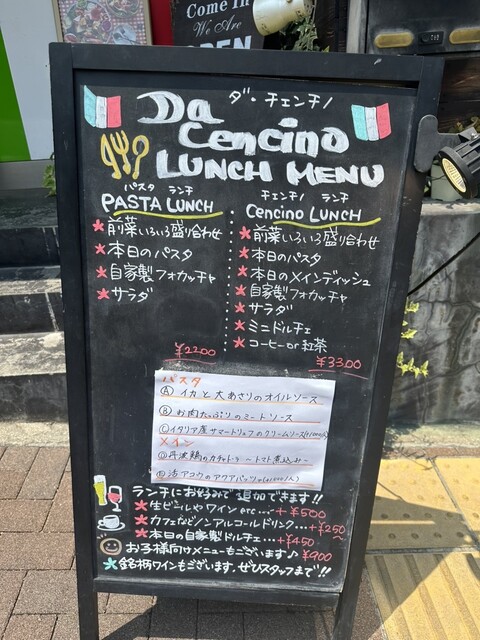 Come In
We Are
OPEN
ダ・チェンチノ
Da
Cencino
LUNCH MENU
パスタ ランチ
PASTA LUNCH
★前菜いろいろ盛り合わせ
★本日のパスタ
★自家製フォカッチャ
★サラダ
¥2200
チェンチノ ランチ
Cencino LUNCH
★前菜いろいろ盛り合わせ
★本日のパスタ
★本日のメインディッシュ
★自家製フォカッチャ
★サラダ
★ミニドルチェ
★コーヒーor紅茶
¥3300
パスタ
Ⓐ イカと大あさりのオイルソース
Ⓑ お肉たっぷりのミートソース
Ⓒ イタリア産サマートリュフのクリームソース
メイン
Ⓓ 丹波鶏のカチャトーラ ートマト煮込みー
Ⓔ 活アコウのアクアパッツァ
ランチにお好みで追加できます!!
★生ビールやワイン etc…+¥500
★カフェなどノンアルコールドリンク…+¥250~
★本日の自家製ドルチェ…+¥450
お子様向けメニューもございます♪ ¥900
★銘柄ワインもございます。ぜひスタッフまで!!